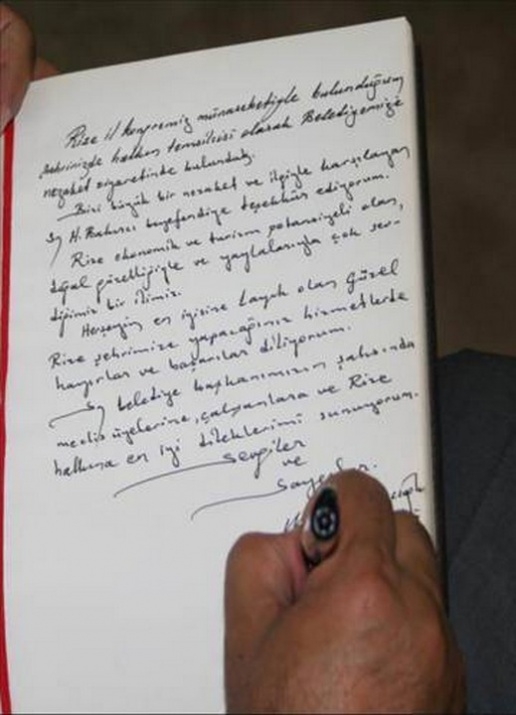 Rise il kongremiz münasebetiyle bulunduğum
şehrinizde halkın temsilcisi olarak Belediyemize
nezaket ziyaretinde bulunduk.
Bizi büyük bir nezaket ve ilgiyle karşılayan
Sy H. Bakırcı beyefendiye teşekkür ediyorum.
Rize ekonomik ve turizm potansiyeli olan,
doğal güzelliğiyle ve yaylalarıyla çok sev-
diğimiz bir ilimiz.
Herşeyin en iyisine layık olan güzel
Rize şehrimize yapacağınız hizmetlerde
hayırlar ve başarılar diliyorum.
Sy belediye başkanımızın şahsında
meclis üyelerine, çalışanlara ve Rize
halkına en iyi dileklerimi sunuyorum.
Sevgiler
ve
Saygılar.